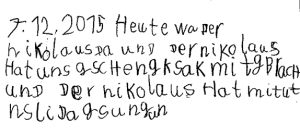 7.12.2015 Heute waper
nikolausda und dernikolaus
Hatunsgschengksakmitgbracht
und Dernikolaus Hatmitut
nslidagsungun